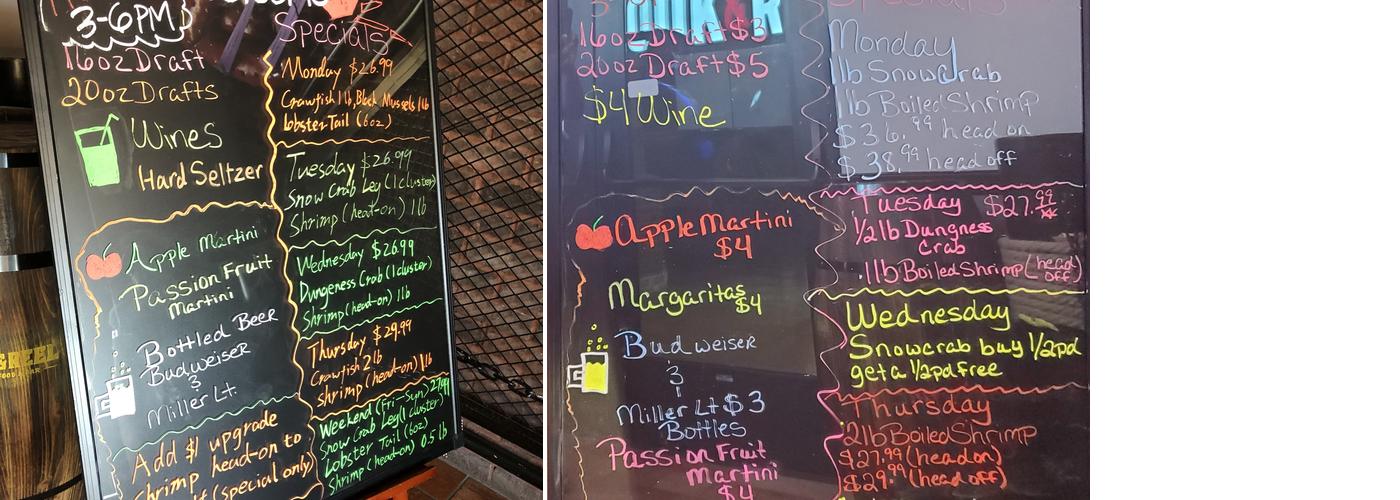 3-6PM
16oz Draft
20oz Drafts
Wines
Hard Seltzer
Apple Martini
Passion Fruit
Martini
Bottled Beer
Budweiser
&
Miller Lt.
Add $1 upgrade
head-on to
shrimp
(special only)
Specials
Monday $26.99
Crawfish 1lb, Black Mussels 1lb
lobster Tail (6oz)
Tuesday $26.99
Snow Crab Leg (1 cluster)
Shrimp (head-on) 1lb
Wednesday $26.99
Dungeness Crab (1 cluster)
Shrimp (head-on) 1lb
Thursday $29.99
Crawfish 2lb
shrimp (head-on) 1lb
Weekend (Fri-Sun) 27.99
Snow Crab Leg (1 cluster)
Lobster Tail (6oz)
Shrimp (head-on) 0.5 lb
16oz Draft $3
20oz Draft $5
$4 Wine
Apple Martini
$4
Margaritas
$4
Budweiser
&
Miller Lt $3
Bottles
Passion Fruit
Martini
$4
Specials
Monday
1lb Snowcrab
1lb Boiled Shrimp
$36.99 head on
$38.99 head off
Tuesday $27.99
1/2lb Dungness
Crab
1lb Boiled Shrimp (head off)
Wednesday
Snowcrab buy 1/2pd
get a 1/2pd free
Thursday
2lb Boiled Shrimp
$27.99 (head on)
$29.99 (head off)